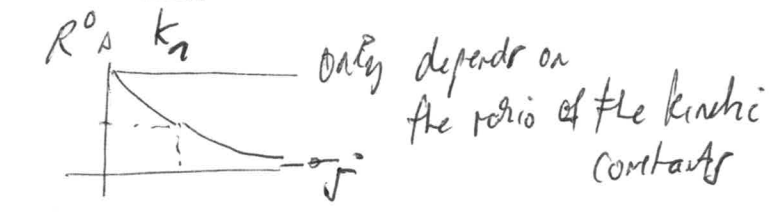 R° k₁
only depends on
the ratio of the kinetic
constants